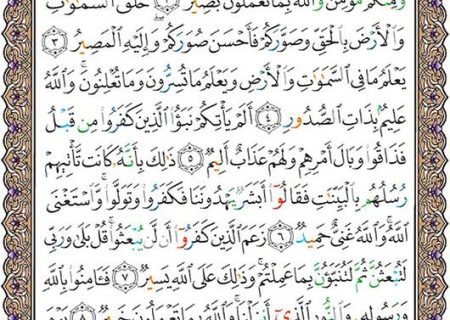 وَمِنكُم مُّؤْمِنٌ وَٱللَّهُ بِمَا تَعْمَلُونَ بَصِيرٌ ٢ خَلَقَ ٱلسَّمَٰوَٰتِ
وَٱلْأَرْضَ بِٱلْحَقِّ وَصَوَّرَكُمْ فَأَحْسَنَ صُوَرَكُمْ وَإِلَيْهِ ٱلْمَصِيرُ ٣
يَعْلَمُ مَا فِى ٱلسَّمَٰوَٰتِ وَٱلْأَرْضِ وَيَعْلَمُ مَا تُسِرُّونَ وَمَا تُعْلِنُونَ وَٱللَّهُ
عَلِيمٌۢ بِذَاتِ ٱلصُّدُورِ ٤ أَلَمْ يَأْتِكُمْ نَبَؤُا۟ ٱلَّذِينَ كَفَرُوا۟ مِن قَبْلُ
فَذَاقُوا۟ وَبَالَ أَمْرِهِمْ وَلَهُمْ عَذَابٌ أَلِيمٌ ٥ ذَٰلِكَ بِأَنَّهُۥ كَانَت تَّأْتِيهِمْ
رُسُلُهُم بِٱلْبَيِّنَٰتِ فَقَالُوٓا۟ أَبَشَرٌ يَهْدُونَنَا فَكَفَرُوا۟ وَتَوَلَّوا۟ وَّٱسْتَغْنَى
ٱللَّهُ وَٱللَّهُ غَنِىٌّ حَمِيدٌ ٦ زَعَمَ ٱلَّذِينَ كَفَرُوٓا۟ أَن لَّن يُبْعَثُوا۟ قُلْ بَلَىٰ وَرَبِّى
لَتُبْعَثُنَّ ثُمَّ لَتُنَبَّؤُنَّ بِمَا عَمِلْتُمْ وَذَٰلِكَ عَلَى ٱللَّهِ يَسِيرٌ ٧ فَـَٔامِنُوا۟ بِٱللَّهِ
وَرَسُولِهِۦ وَٱلنُّورِ ٱلَّذِىٓ أَنزَلْنَا وَٱللَّهُ بِمَا تَعْمَلُونَ خَبِيرٌ ٨ يَوْمَ